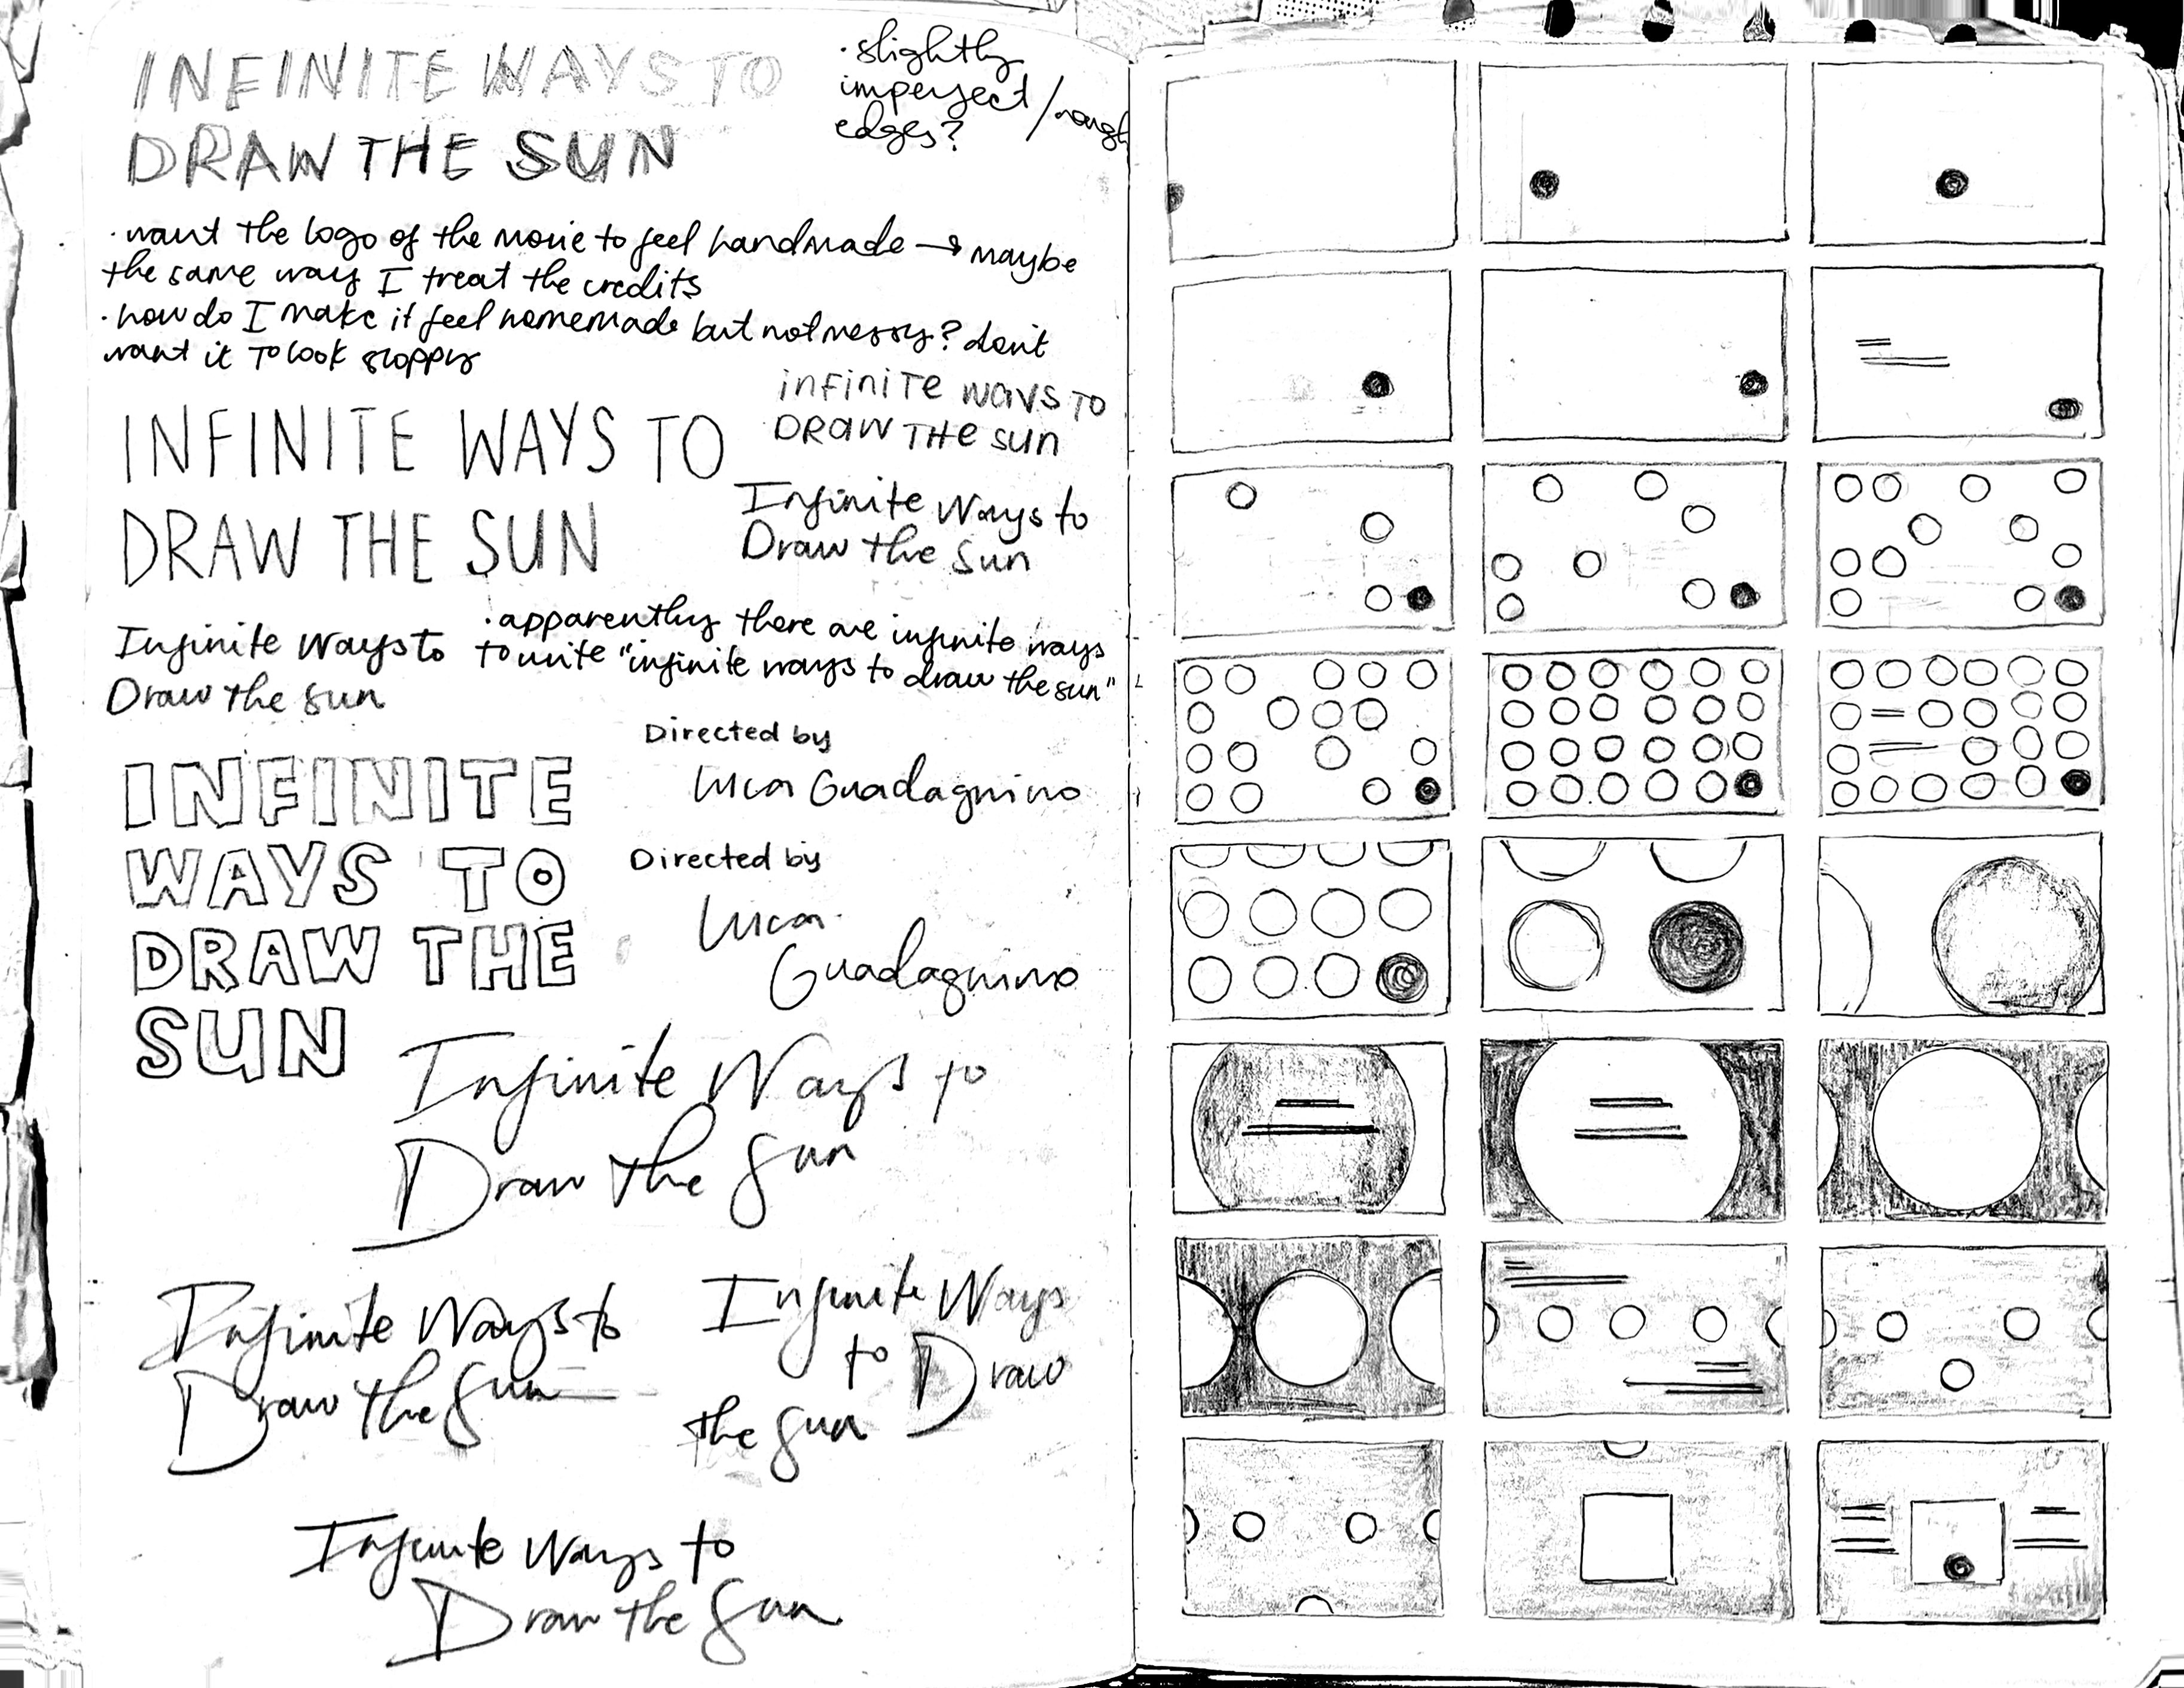 INFINITE WAYS TO
DRAW THE SUN
· slightly
imperfect / rough
edges?
· want the logo of the movie to feel handmade → maybe
the same way I treat the credits
· how do I make it feel homemade but not messy? don't
want it to look sloppy
INFINITE WAYS TO
DRAW THE SUN
iNFiNiTe WAYS TO
DRAW THe SUN
Infinite Ways to
Draw the Sun
Infinite Ways to
Draw the Sun
· apparently there are infinite ways
to write "infinite ways to draw the sun"
Directed by
Luca Guadagnino
Directed by
Luca
Guadagnino
INFINITE
WAYS TO
DRAW THE
SUN
Infinite Ways to
Draw the Sun
Infinite Ways to
Draw the Sun
Infinite Ways
to Draw
the Sun
Infinite Ways to
Draw the Sun